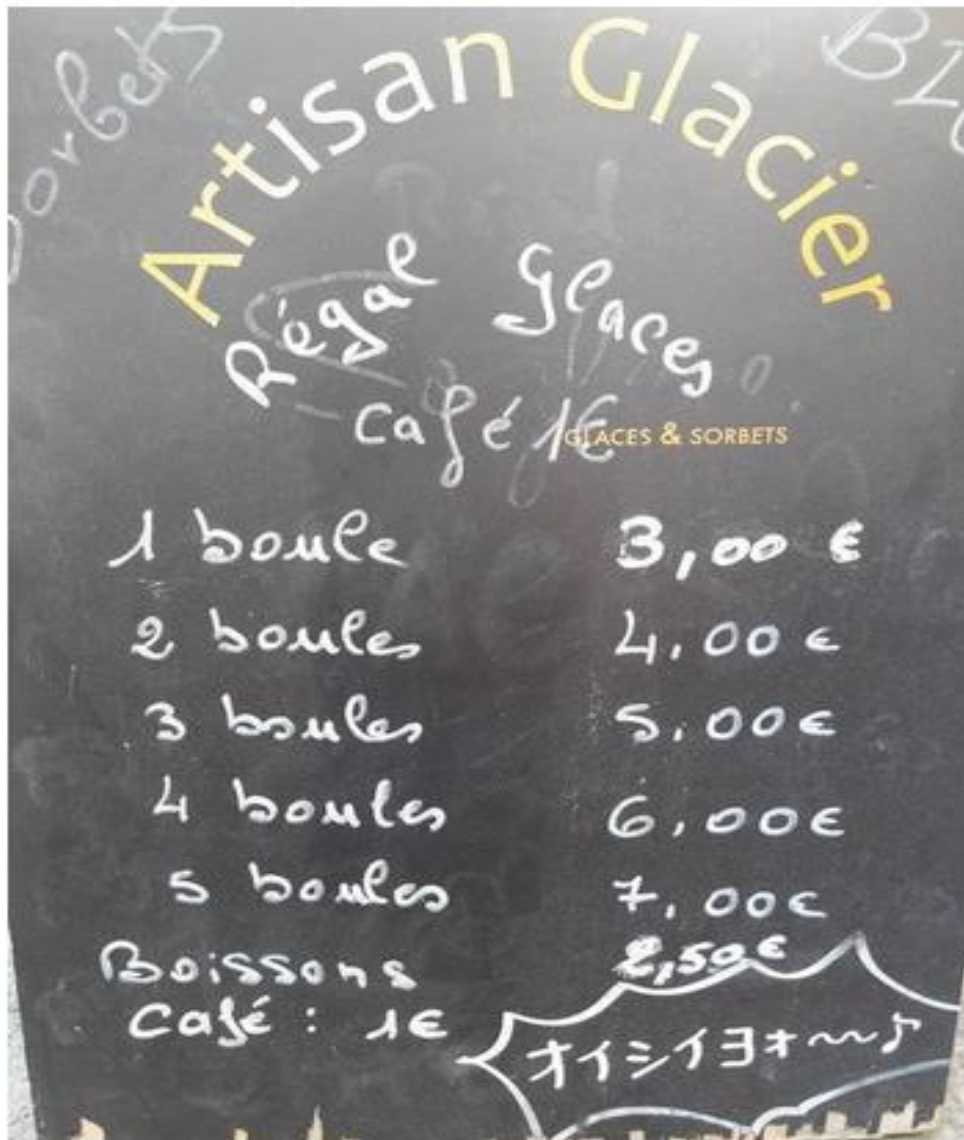 Sorbets
Artisan Glacier
Régal Glaces
café 1€
GLACES & SORBETS
1 boule 3,00 €
2 boules 4,00 €
3 boules 5,00 €
4 boules 6,00 €
5 boules 7,00 €
Boissons 2,50 €
Café : 1€
オイシイヨオ〜〜♪